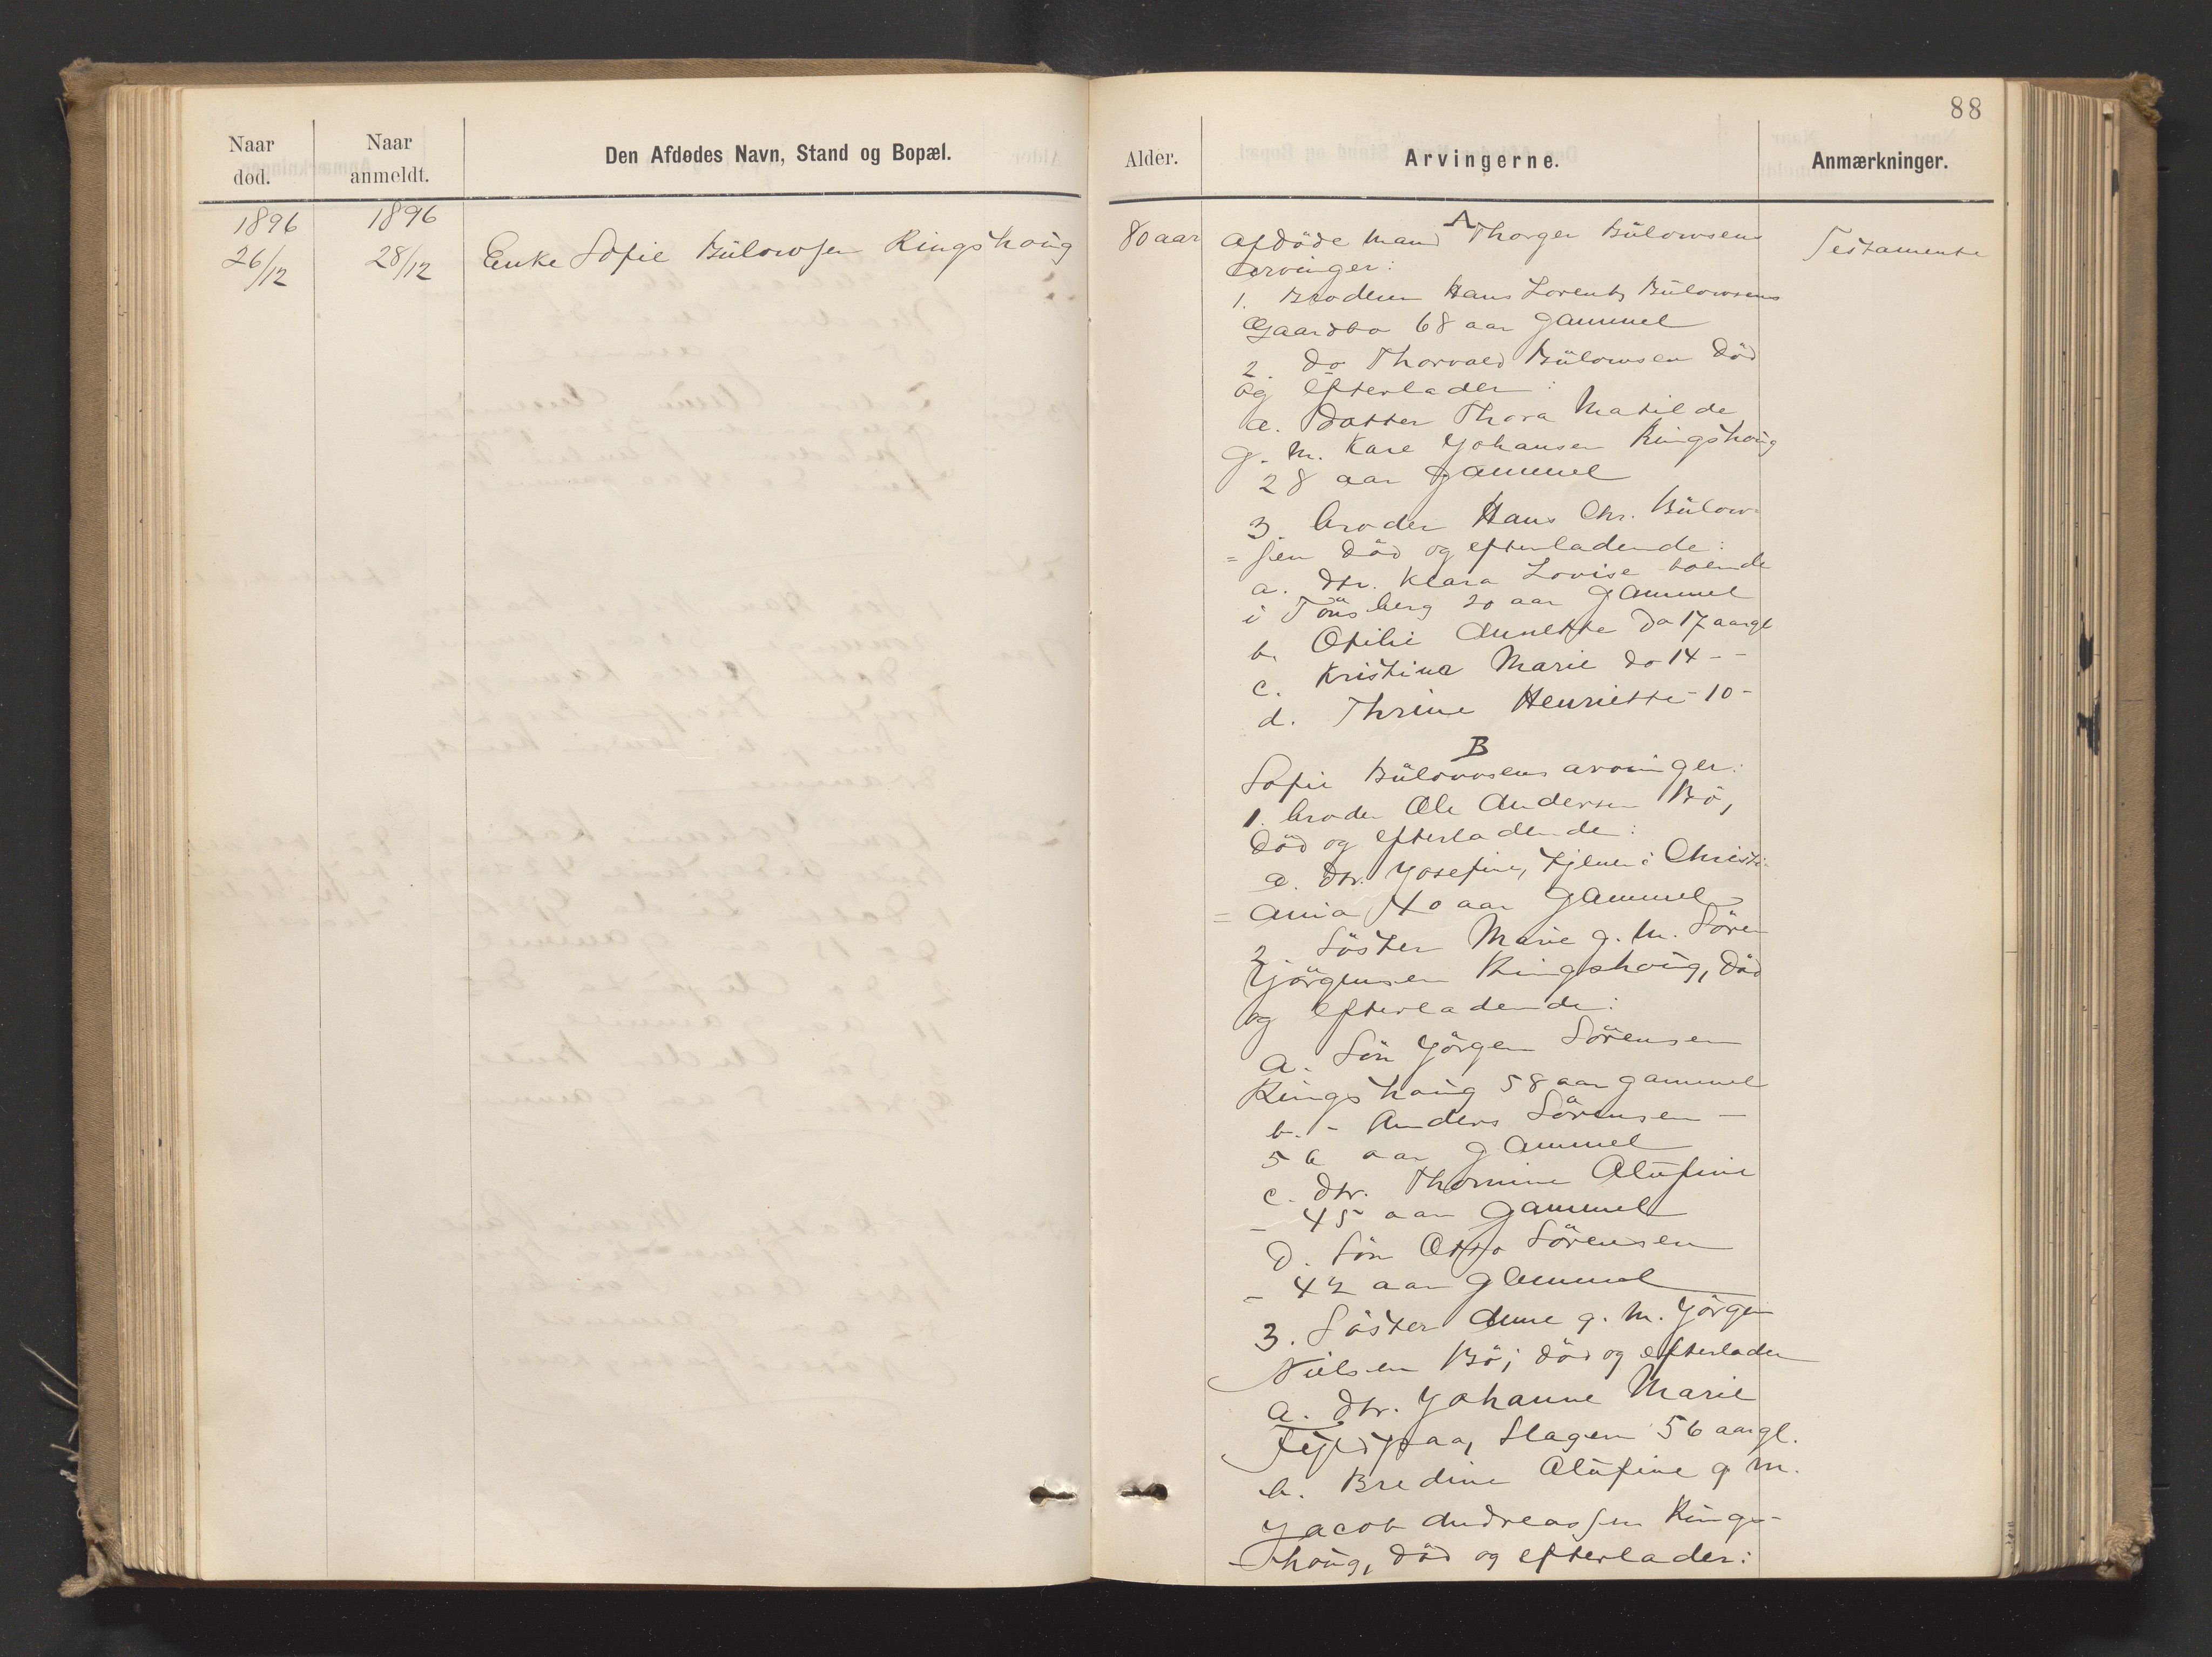 88
Naar død.
Naar anmeldt.
Den Afdødes Navn, Stand og Bopæl.
Alder.
Arvingerne.
Anmærkninger.
1896
26/12
1896
28/12
Enke Sofie Bülowsen Ringshoug
80 aar
A
Afdöde Mand Thorger Bülowsens
Arvinger:
1. Broderen Hans Lorentz Bülowsens
Gaardbo 68 aar gammel
2. do Thorvald Bülowsen död
og efterlader:
a. Datter Thora Matilde
g. m. Karl Johansen Ringshoug
28 aar gammel
3 broder Hans Chr. Bülow-
=sen död og efterladende:
a. Dtr. Klara Lovise boende
i Tönsberg 20 aar gammel
b. Otilie Annette do 17 aargl
c. Kristine Marie do 14 - -
d. Thrine Henriette - 10 -
B
Sofie Bülowsens arvinger:
1. broder Ole Andersen Bö,
död og efterladende:
a. Dtr. Josefine, tjener i Christi-
= ania 40 aar gammel
2 Söster Marie g. m. Sören
Jörgensen Ringshoug, död
og efterladende:
a. Sön Jörgen Sörensen
Ringshoug 58 aar gammel
b. - Anders Sörensen -
56 aar gammel
c. Dtr. Thomine Olufine
- 45 aar gammel
d. Sön Otto Sörensen
- 42 aar gammel
3. Söster Anne g. m. Jörgen
Nielsen Bö; död og efterlader
a. Dtr. Johanne Marie
Slagen 56 aargl.
b. Bredine Olufine g m.
Jacob Andreassen Rings-
- houg, död og efterlader:
Testamente